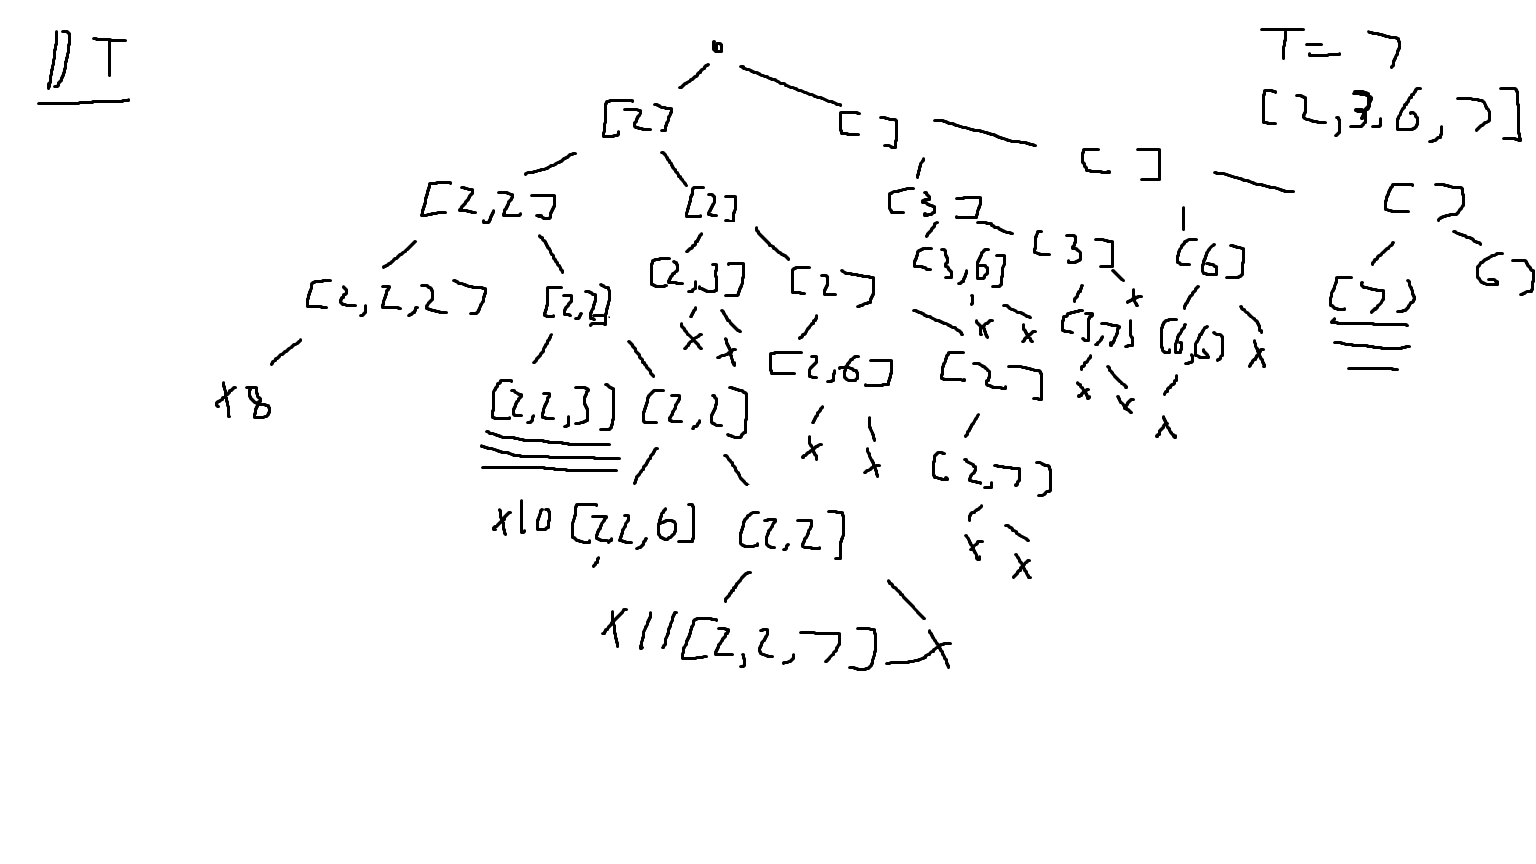 DT
T= 7
[2,3,6,7]
[2] [ ] [ ] [ ]
[2,2] [2] [3] [3] [6] [7] []
[2,2,2] [2,2] [2,3] [2] [3,6] [3,7] [6,6] x
x8 [2,2,3] [2,2] x x [2,6] [2] x x x x x
x10 [2,2,6] [2,2] x x [2,7]
x11 [2,2,7] x x x